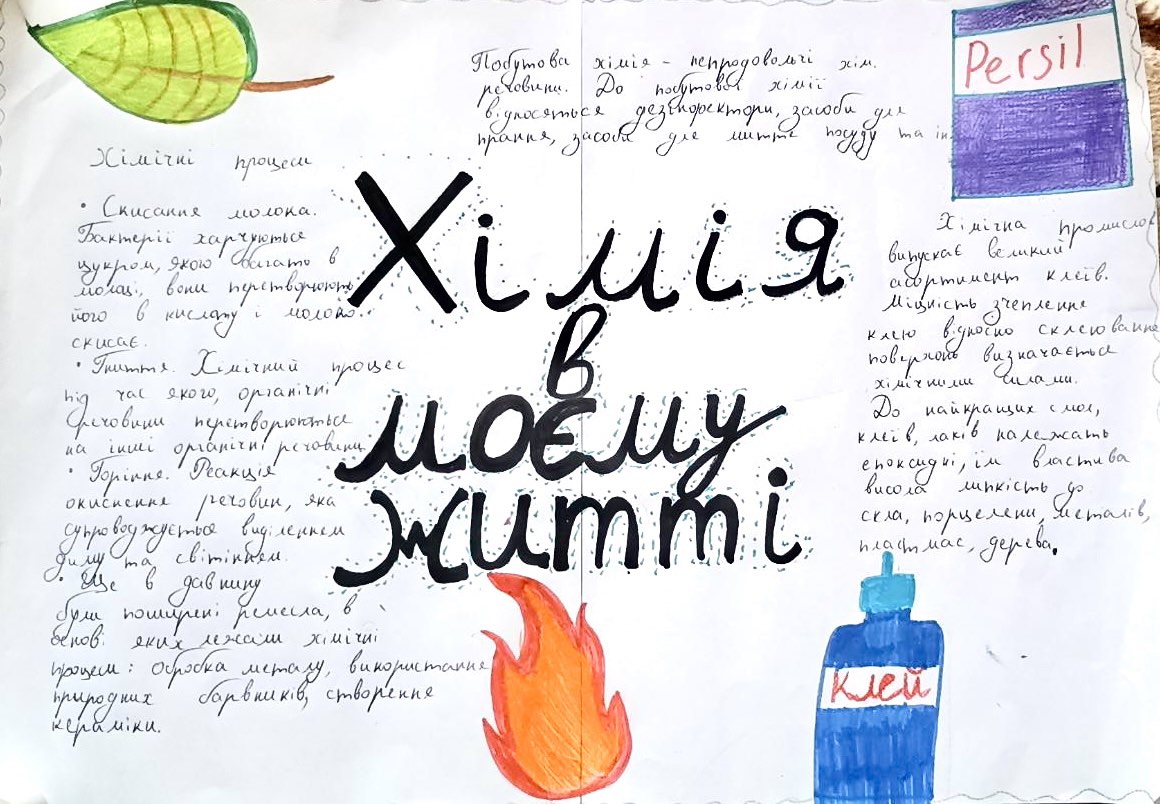 Побутова хімія - непродовольчі хім.
речовини. До побутової хімії
відносяться дезінфектори, засоби для
прання, засоби для миття посуду та ін
Persil
Хімічні процеси
• Скисання молока.
Бактерії харчуються
цукром, якого багато в
молоці, вони перетворюють
його в кислоту і молоко
скисає.
• Гниття. Хімічний процес
під час якого, органічні
речовини перетворюються
на інші органічні речовини
• Горіння. Реакція
окиснення речовин, яка
супроводжується виділенням
диму та світінням.
• Ще в давнину
були поширені ремесла, в
основі яких лежали хімічні
процеси: обробка металу, використання
природних барвників, створення
кераміки.
Хімія
в
моєму
житті
Хімічна промислов
випускає великий
асортимент клеїв.
Міцність зчеплення
клею відносно склеювання
поверхонь визначається
хімічними силами.
До найкращих смол,
клеїв, лаків належать
епоксидні, їм властива
висока липкість до
скла, порцеляни, металів,
пластмас, дерева.
Клей